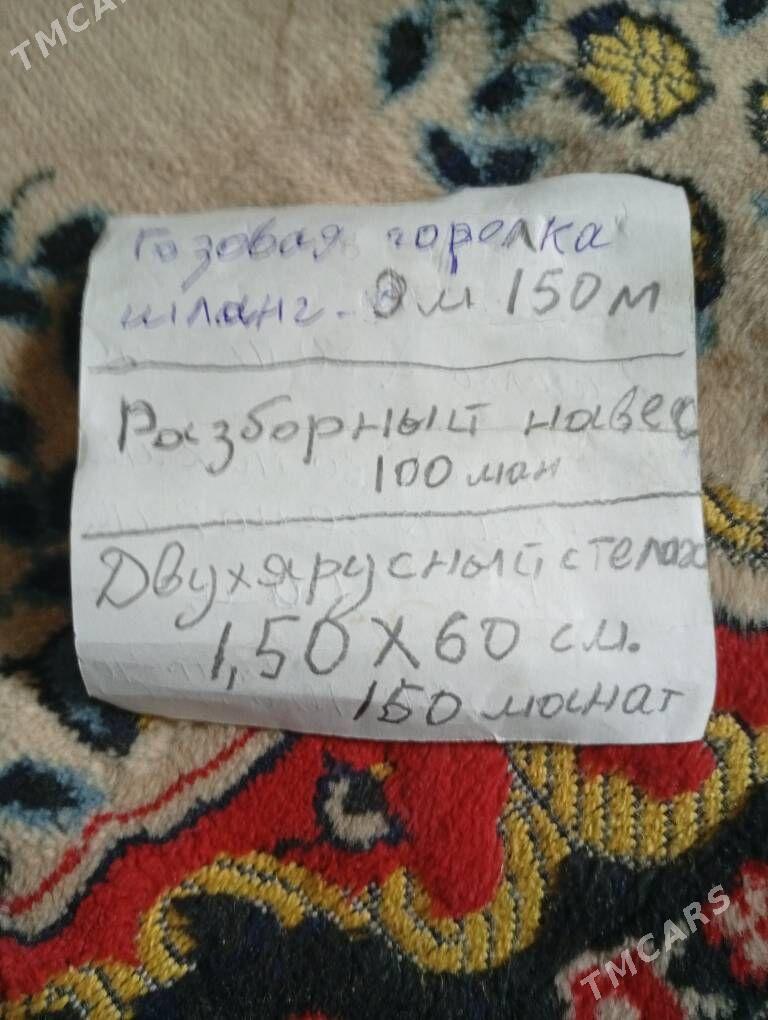 TMCARS
Газовая горелка
шланг - 8м 150м
Разборный навес
100 ман
Двухярусный стелаж
1,50 X 60 см.
150 манат
TMCARS